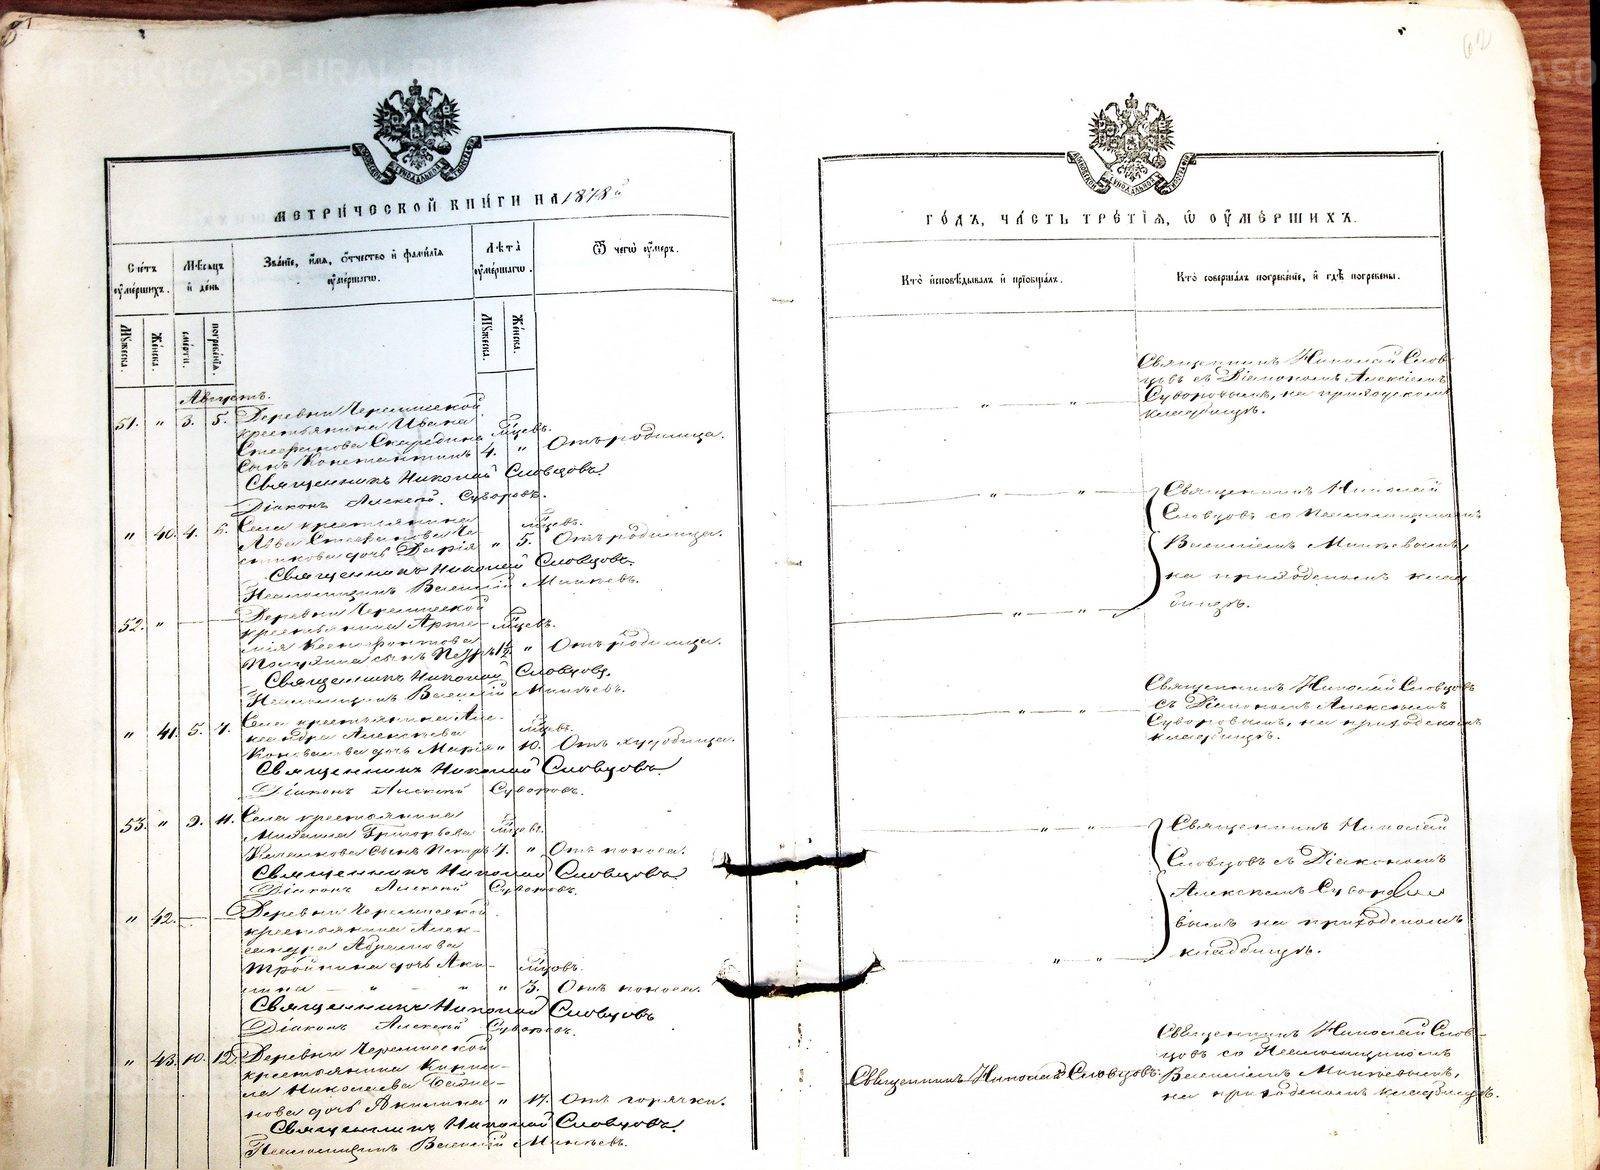 62
МЕТРИЧЕСКОЙ КНИГИ НА 1878й
Счетъ умершихъ.
Мѣсяцъ и день
Званіе, имя, отчество и фамилія умершагѡ.
Лѣта умершагѡ.
Ѿ чегѡ умеръ.
Мужеска.
Женска.
смерти.
погребенія.
Мужеска.
Женска.
Августъ.
51. " 3. 5. Деревни Черемисской
крестьянина Ивана
Стефанова Скаредина мѣсцевъ.
сынъ Константинъ 4. " Отъ родимца.
Священникъ Николай Словцовъ.
Діаконъ Алексѣй Суворовъ.
" 40. 4. 6. Села крестьянина мѣсцевъ.
дочь Дарія " 5. Отъ родимца.
Священникъ Николай Словцовъ.
Псаломщикъ Василій Минѣевъ.
52. " Деревни Черемисской
крестьянина Арте- мѣсцевъ.
мія Ксенофонтова
сынъ Петръ 1½ " Отъ родимца.
Священникъ Николай Словцовъ.
Псаломщикъ Василій Минѣевъ.
" 41. 5. 7. Села крестьянина Але-
ксандра Алексѣева мѣсцевъ.
Коновалова дочь Марія " 10. Отъ худобища.
Священникъ Николай Словцовъ.
Діаконъ Алексѣй Суворовъ.
53. " 9. 11. Села крестьянина
Михаила Григорьева мѣсцевъ.
сынъ Петръ 7. " Отъ поноса.
Священникъ Николай Словцовъ.
Діаконъ Алексѣй Суворовъ.
" 42. Деревни Черемисской
крестьянина Алек-
сандра Абрамова
дочь Аки- мѣсцовъ.
лина " " " 3. Отъ поноса.
Священникъ Николай Словцовъ
Діаконъ Алексѣй Суворовъ.
" 43. 10. 12. Деревни Черемисской
крестьянина Кирил-
ла Николаева
дочь Акилина " 17. Отъ горячки.
Священникъ Николай Словцовъ.
Псаломщикъ Василій Минѣевъ.
ГОДЪ, ЧАСТЬ ТРЕТІЯ, Ѡ УМЕРШИХЪ.
Кто исповѣдывалъ и пріобщалъ.
Кто совершалъ погребеніе, и гдѣ погребены.
Священникъ Николай Слов-
цовъ съ Діакономъ Алексѣемъ
Суворовымъ, на приходскомъ
кладбищѣ.
Священникъ Николай
Словцовъ со Псаломщикомъ
Василіемъ Минѣевымъ,
на приходскомъ клад
бищѣ.
Священникъ Николай Словцовъ
съ Діакономъ Алексѣемъ
Суворовымъ, на приходскомъ
кладбищѣ.
Священникъ Николай
Словцовъ съ Діакономъ
Алексѣемъ Суворо
вымъ на приходскомъ
кладбищѣ.
Священникъ Николай Словцовъ.
Священникъ Николай Слов-
цовъ со Псаломщикомъ
Василіемъ Минѣевымъ,
на приходскомъ кладбищѣ.